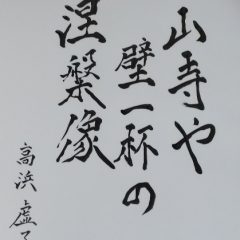 山寺や
壁一杯の
涅槃像
高浜虚